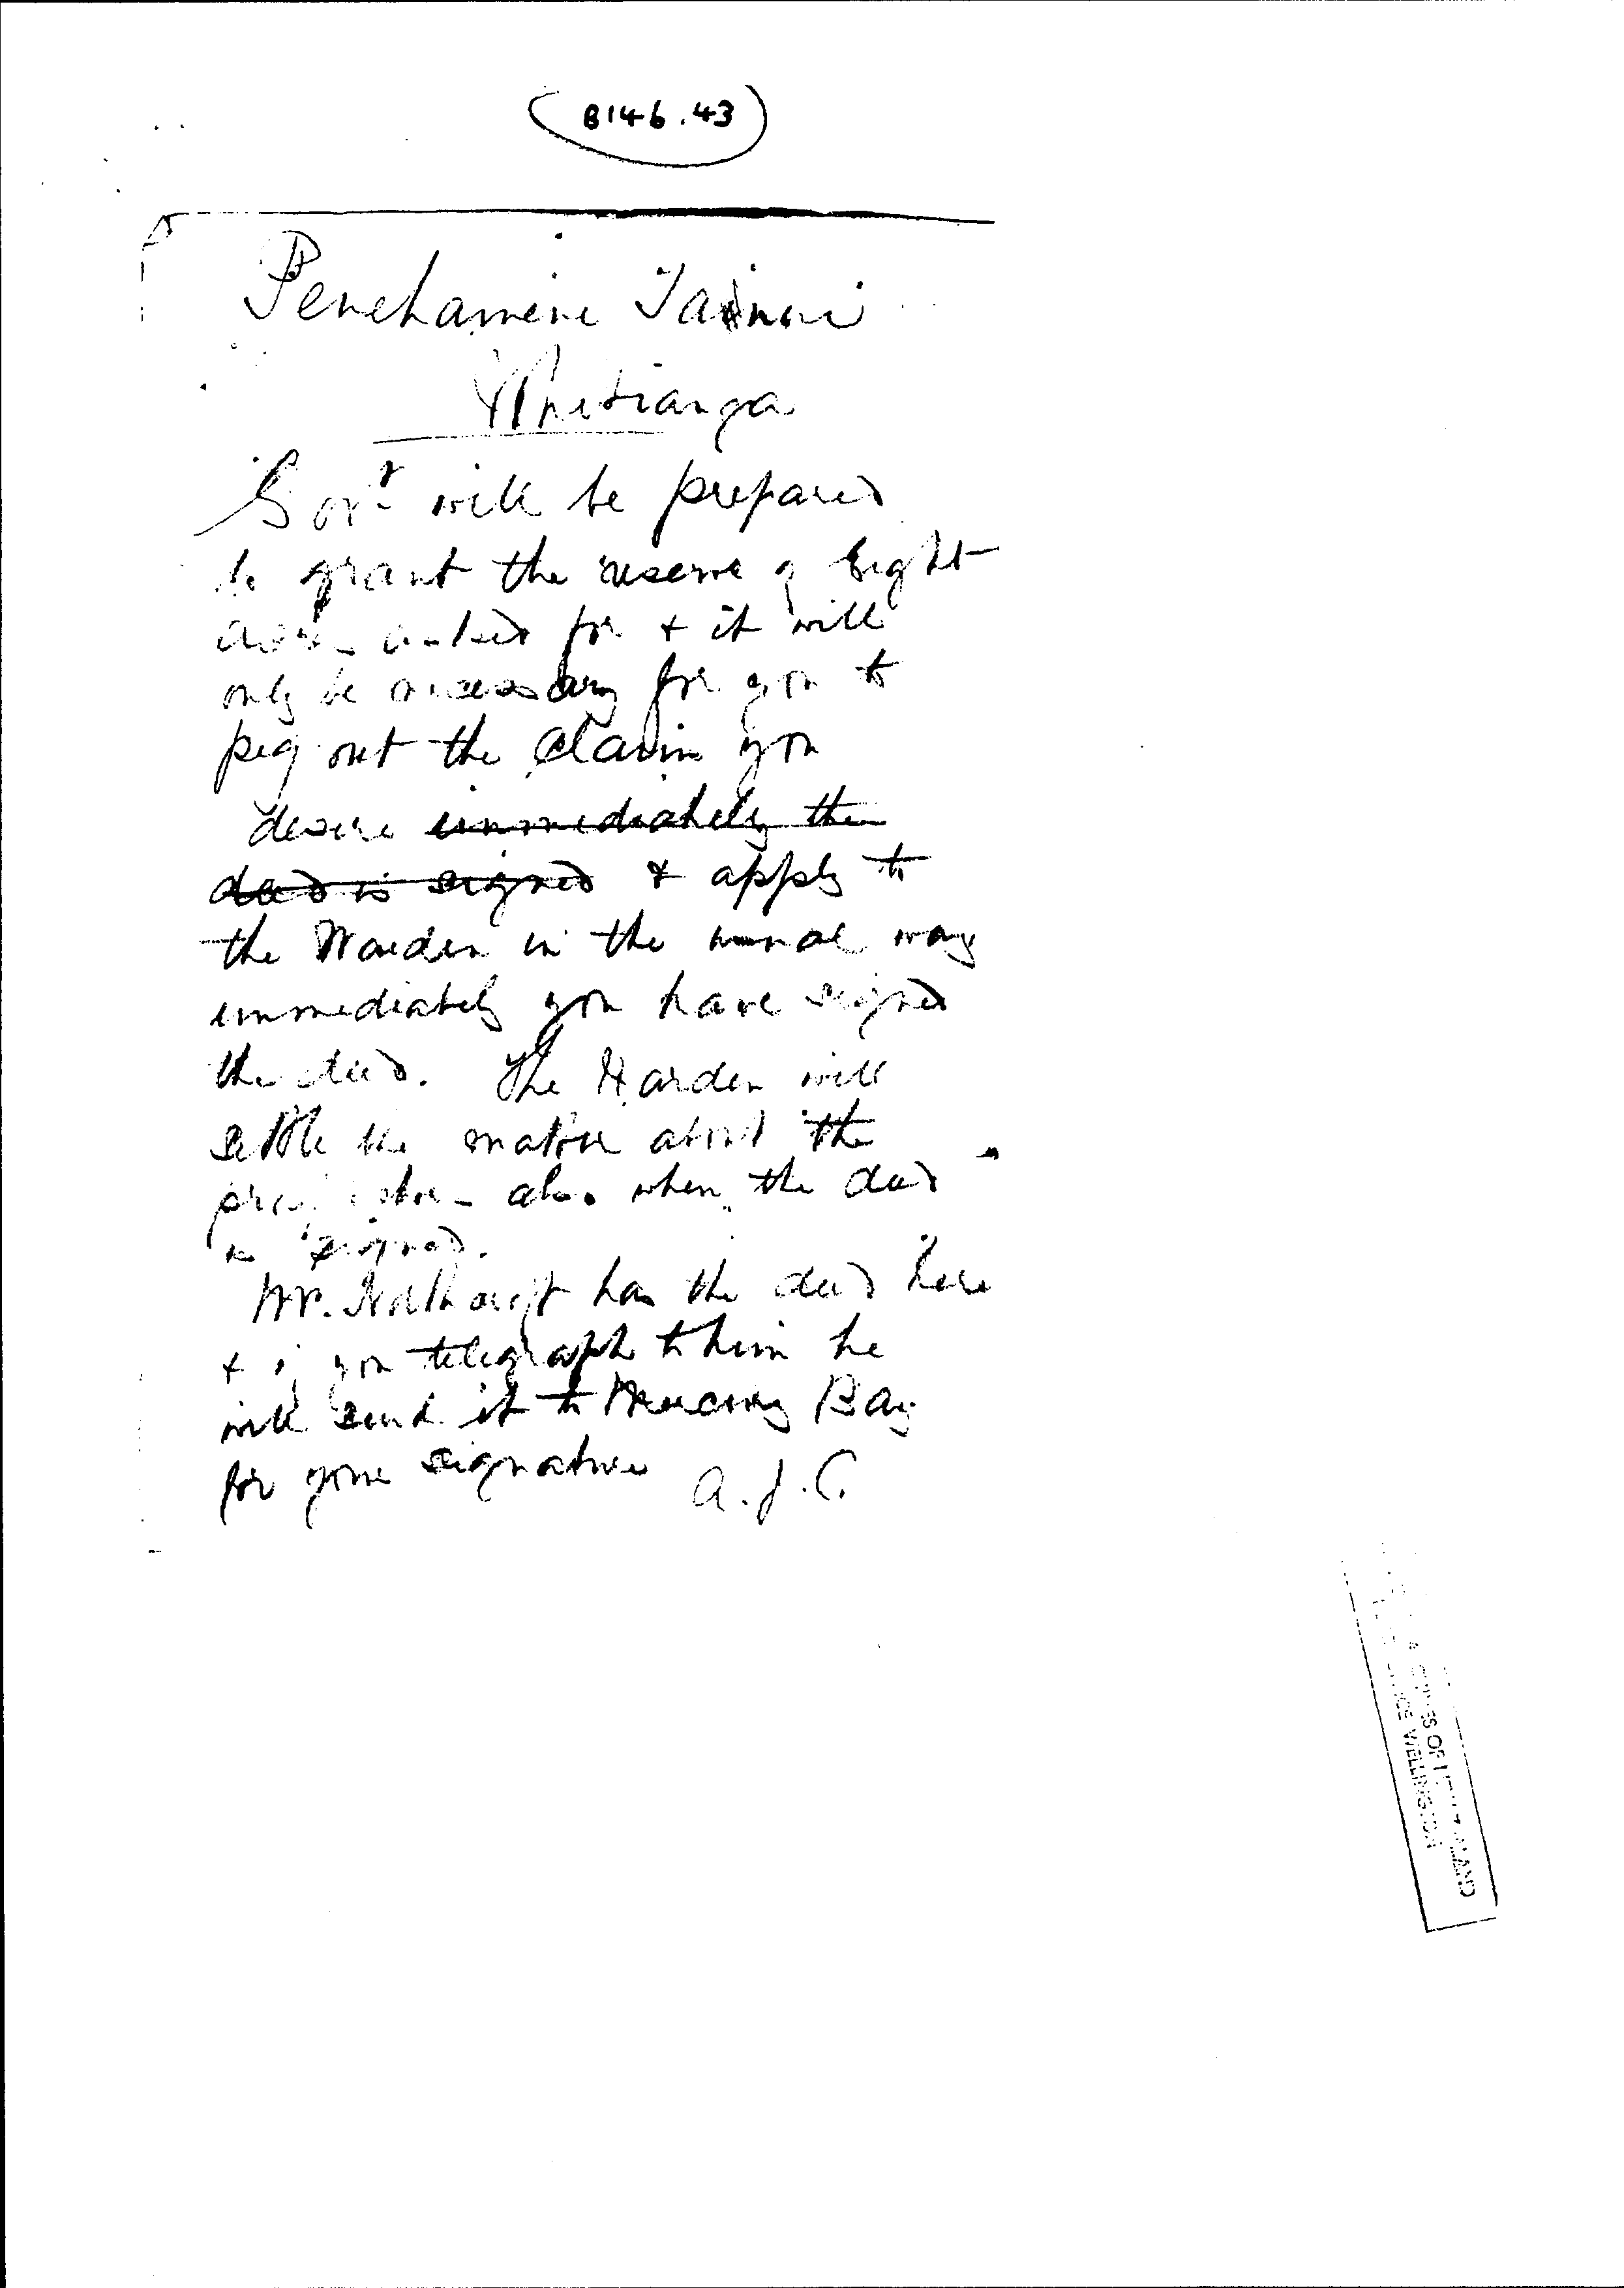 B146.43
Penehamene Tainui
Whitianga
Govt. will be prepared
to grant the reserve of Eight
acres asked for & it will
only be necessary for you to
peg out the claim you
desire immediately the
deed is signed & apply to
the Warden in the usual way
immediately you have signed
the deed. The Warden will
settle the matter about the
also when the deed
is signed.
Mr. has the deed here
& if you telegraph to him he
will send it to Mercury Bay
for your signature A.J.C.
OF
WELLINGTON